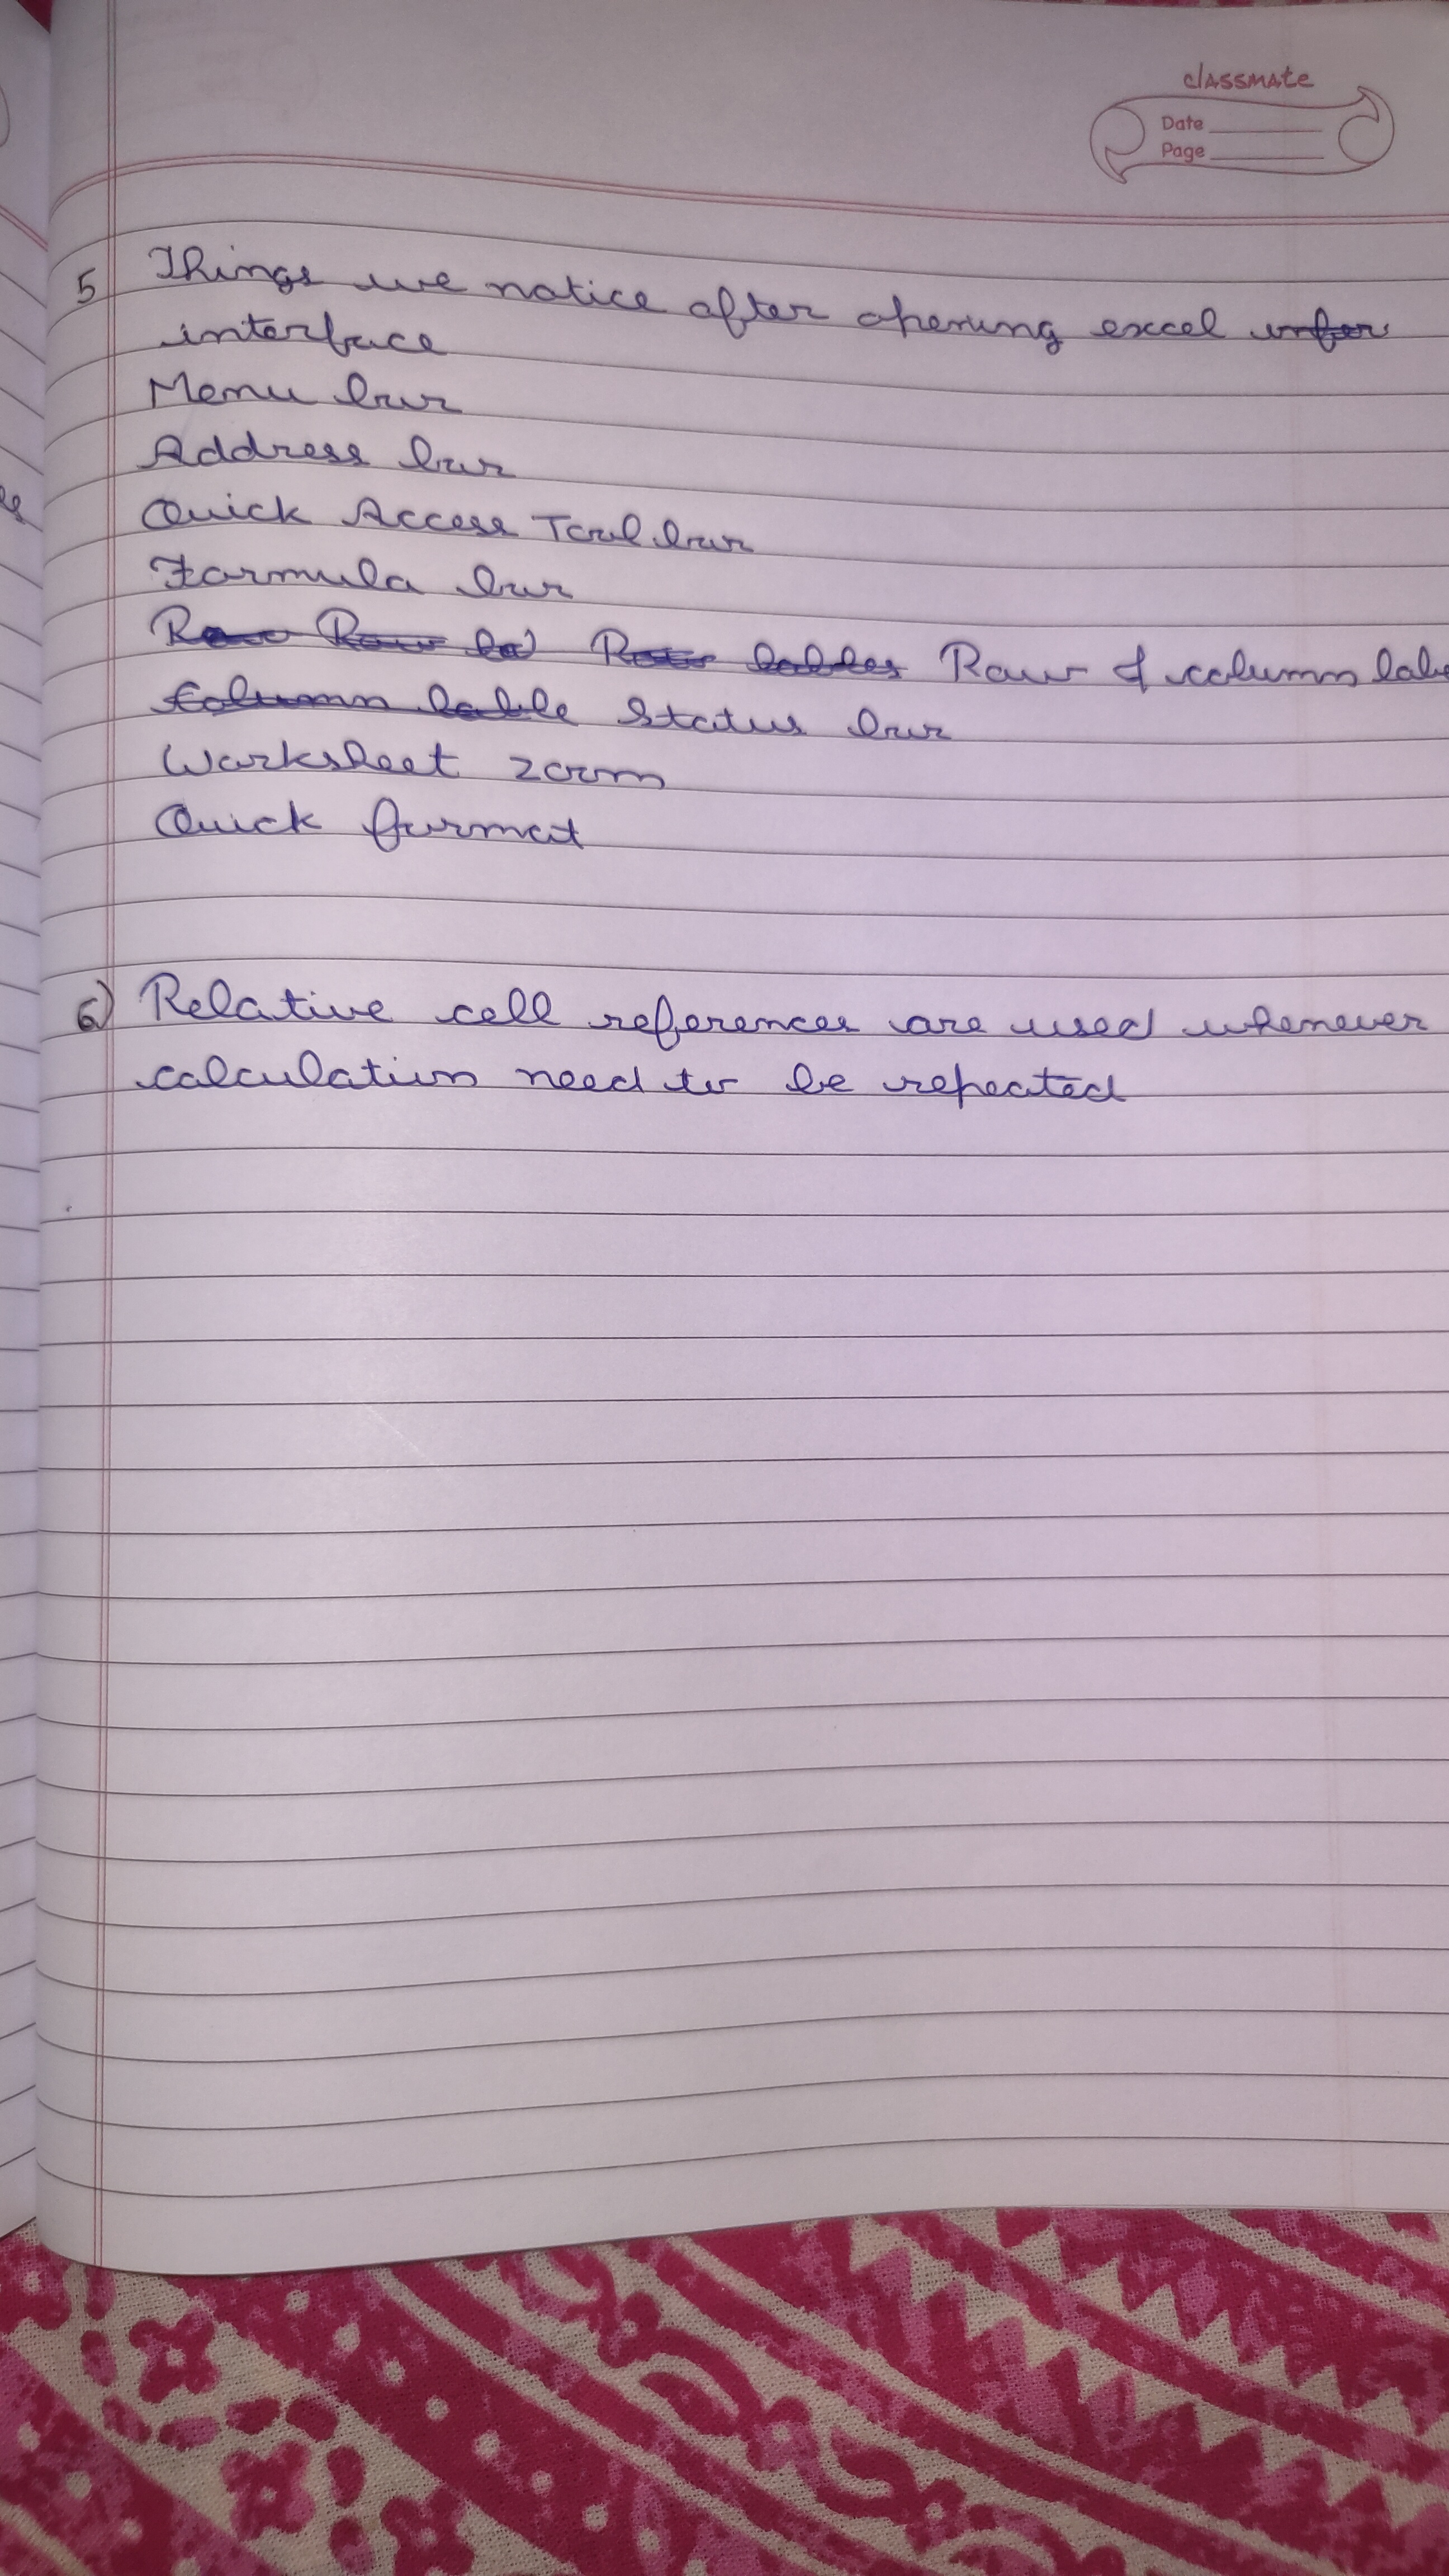 classmate
Date
Page
5 Things we notice after opening excel infer
interface
Menu bar
Address bar
Quick Access Tool bar
Formula bar
Row Row la Row lables Row & column lab
Column lable Status bar
Worksheet zoom
Quick format
6) Relative cell references are used whenever
calculation need to be repeated